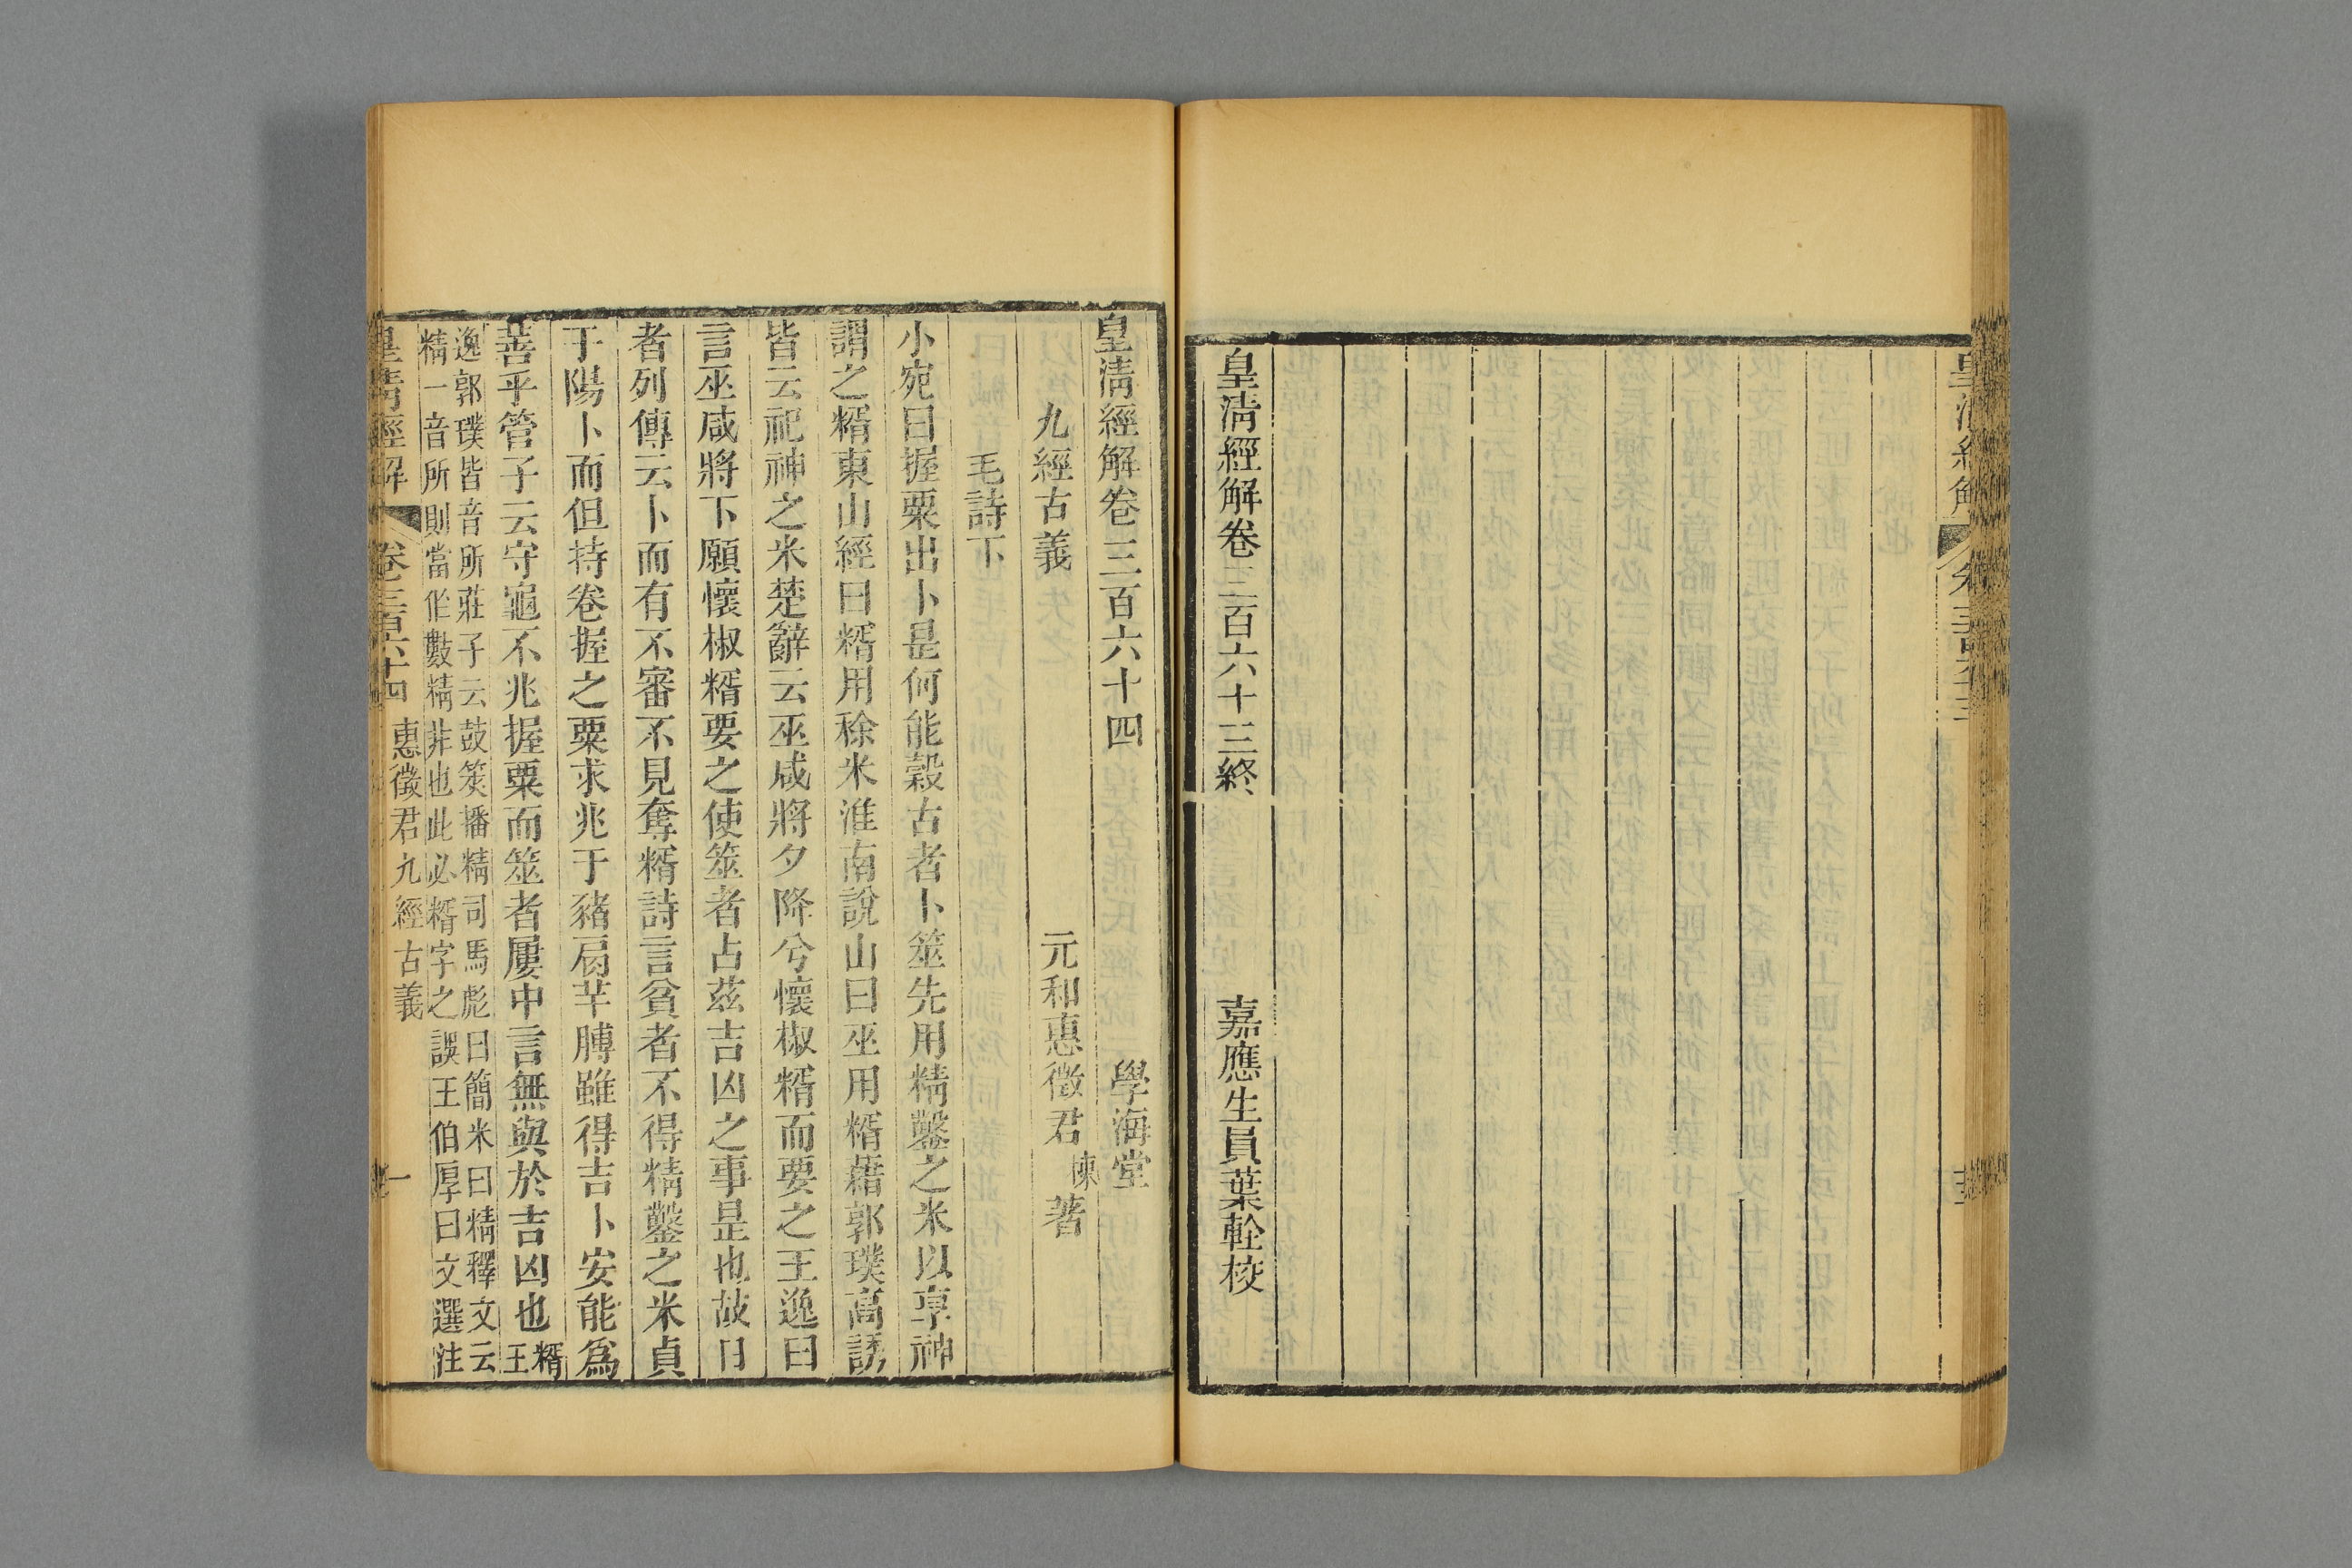 皇清經解卷三百六十三終
嘉應生員葉輇校
皇清經解卷三百六十四
學海堂
九經古義
元和惠徵君棟著
毛詩下
小宛曰握粟出卜是何能穀古者卜筮先用精鑿之米以享神
謂之糈東山經曰糈用稌米淮南說山曰巫用糈藉郭璞高誘
皆云祀神之米楚辭云巫咸將夕降兮懷椒糈而要之王逸曰
言巫咸將下願懷椒糈要之使筮者占茲吉凶之事是也故日
者列傳云卜而有不審不見奪糈詩言貧者不得精鑿之米貞
于陽卜而但持卷握之粟求兆于豬肩羊膊雖得吉卜安能爲
善乎管子云守龜不兆握粟而筮者屢中言無與於吉凶也糈王
逸郭璞皆音所莊子云鼓筴播精司馬彪曰簡米曰精釋文云
精一音所則當作數精非也此必糈字之誤王伯厚曰文選注
皇清經解
卷三百六十四
惠徵君九經古義
一